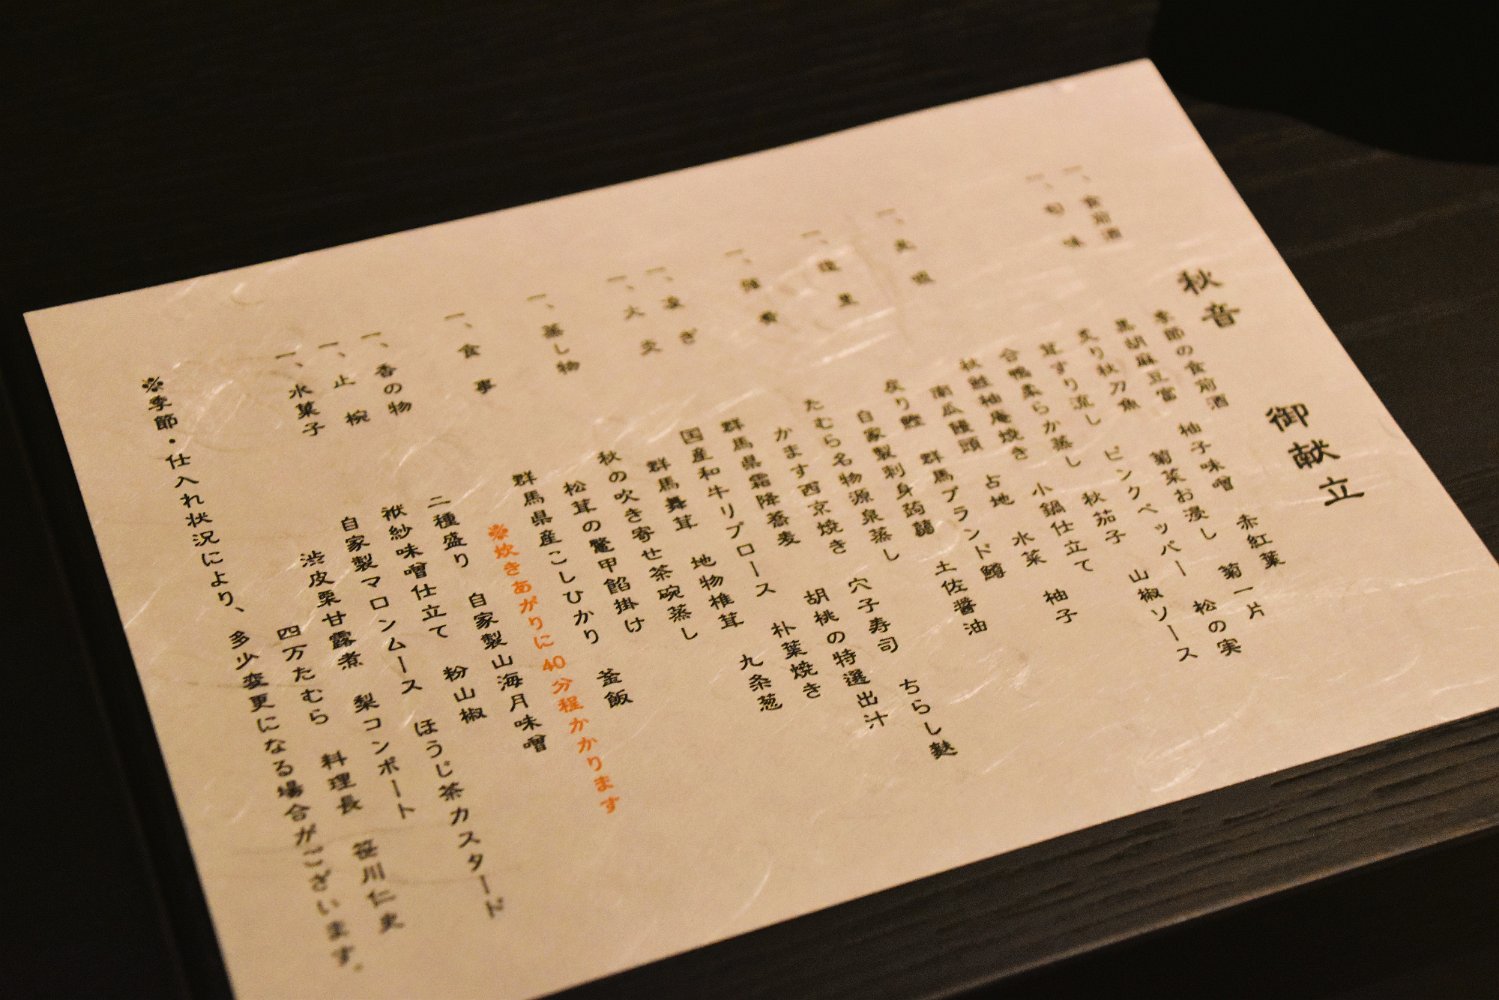 秋音 御献立
一、食前酒 季節の食前酒
一、旬味 黒胡麻豆富 柚子味噌 赤紅葉
炙り秋刀魚 菊菜お浸し 菊一片
茸すり流し ピンクペッパー 松の実
合鴨柔らか蒸し 秋茄子 山椒ソース
秋鮭柚庵焼き 小鍋仕立て
一、 南瓜饅頭 占地 水菜 柚子
一、造里 炙り鰹 群馬ブランド鱒
自家製刺身蒟蒻 土佐醤油
一、強肴 たむら名物源泉蒸し
かます西京焼き 穴子寿司 ちらし麩
一、凌ぎ 群馬県霜降蕎麦 胡桃の特選出汁
一、火炙 国産和牛リブロース 朴葉焼き
群馬舞茸 地物椎茸 九条葱
一、蒸し物 秋の吹き寄せ茶碗蒸し
松茸の鼈甲餡掛け
一、食事 群馬県産こしひかり 釜飯
※炊きあがりに40分程かかります
一、香の物 二種盛り 自家製山海月味噌
一、止椀 袱紗味噌仕立て 粉山椒
一、水菓子 自家製マロンムース ほうじ茶カスタード
渋皮栗甘露煮 梨コンポート
四万たむら 料理長 笹川仁史
※季節・仕入れ状況により、多少変更になる場合がございます。